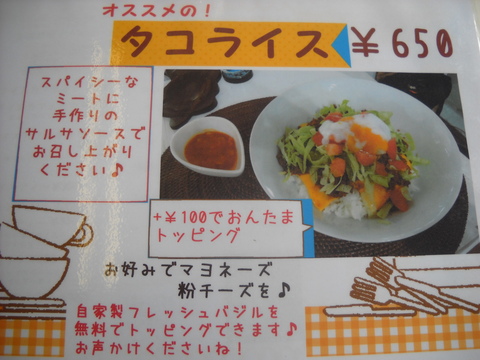 オススメの！
タコライス ￥650
スパイシーな
ミートに
手作りの
サルサソースで
お召し上がり
ください♪
+￥100でおんたま
トッピング
お好みでマヨネーズ
粉チーズを♪
自家製フレッシュバジルを
無料でトッピングできます♪
お声かけくださいね！